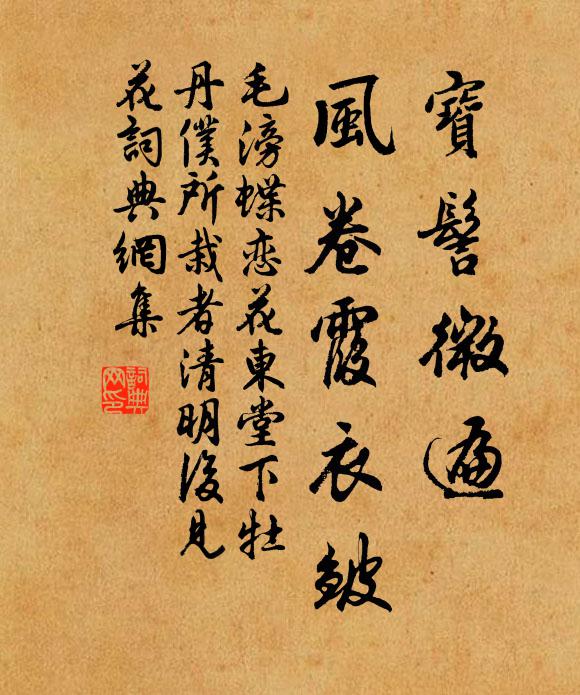 寶髻微遍
風卷霞衣皺
毛滂蝶恋花東堂下牡
丹僕所栽者清明後見
花詞典網集
詞典
网印